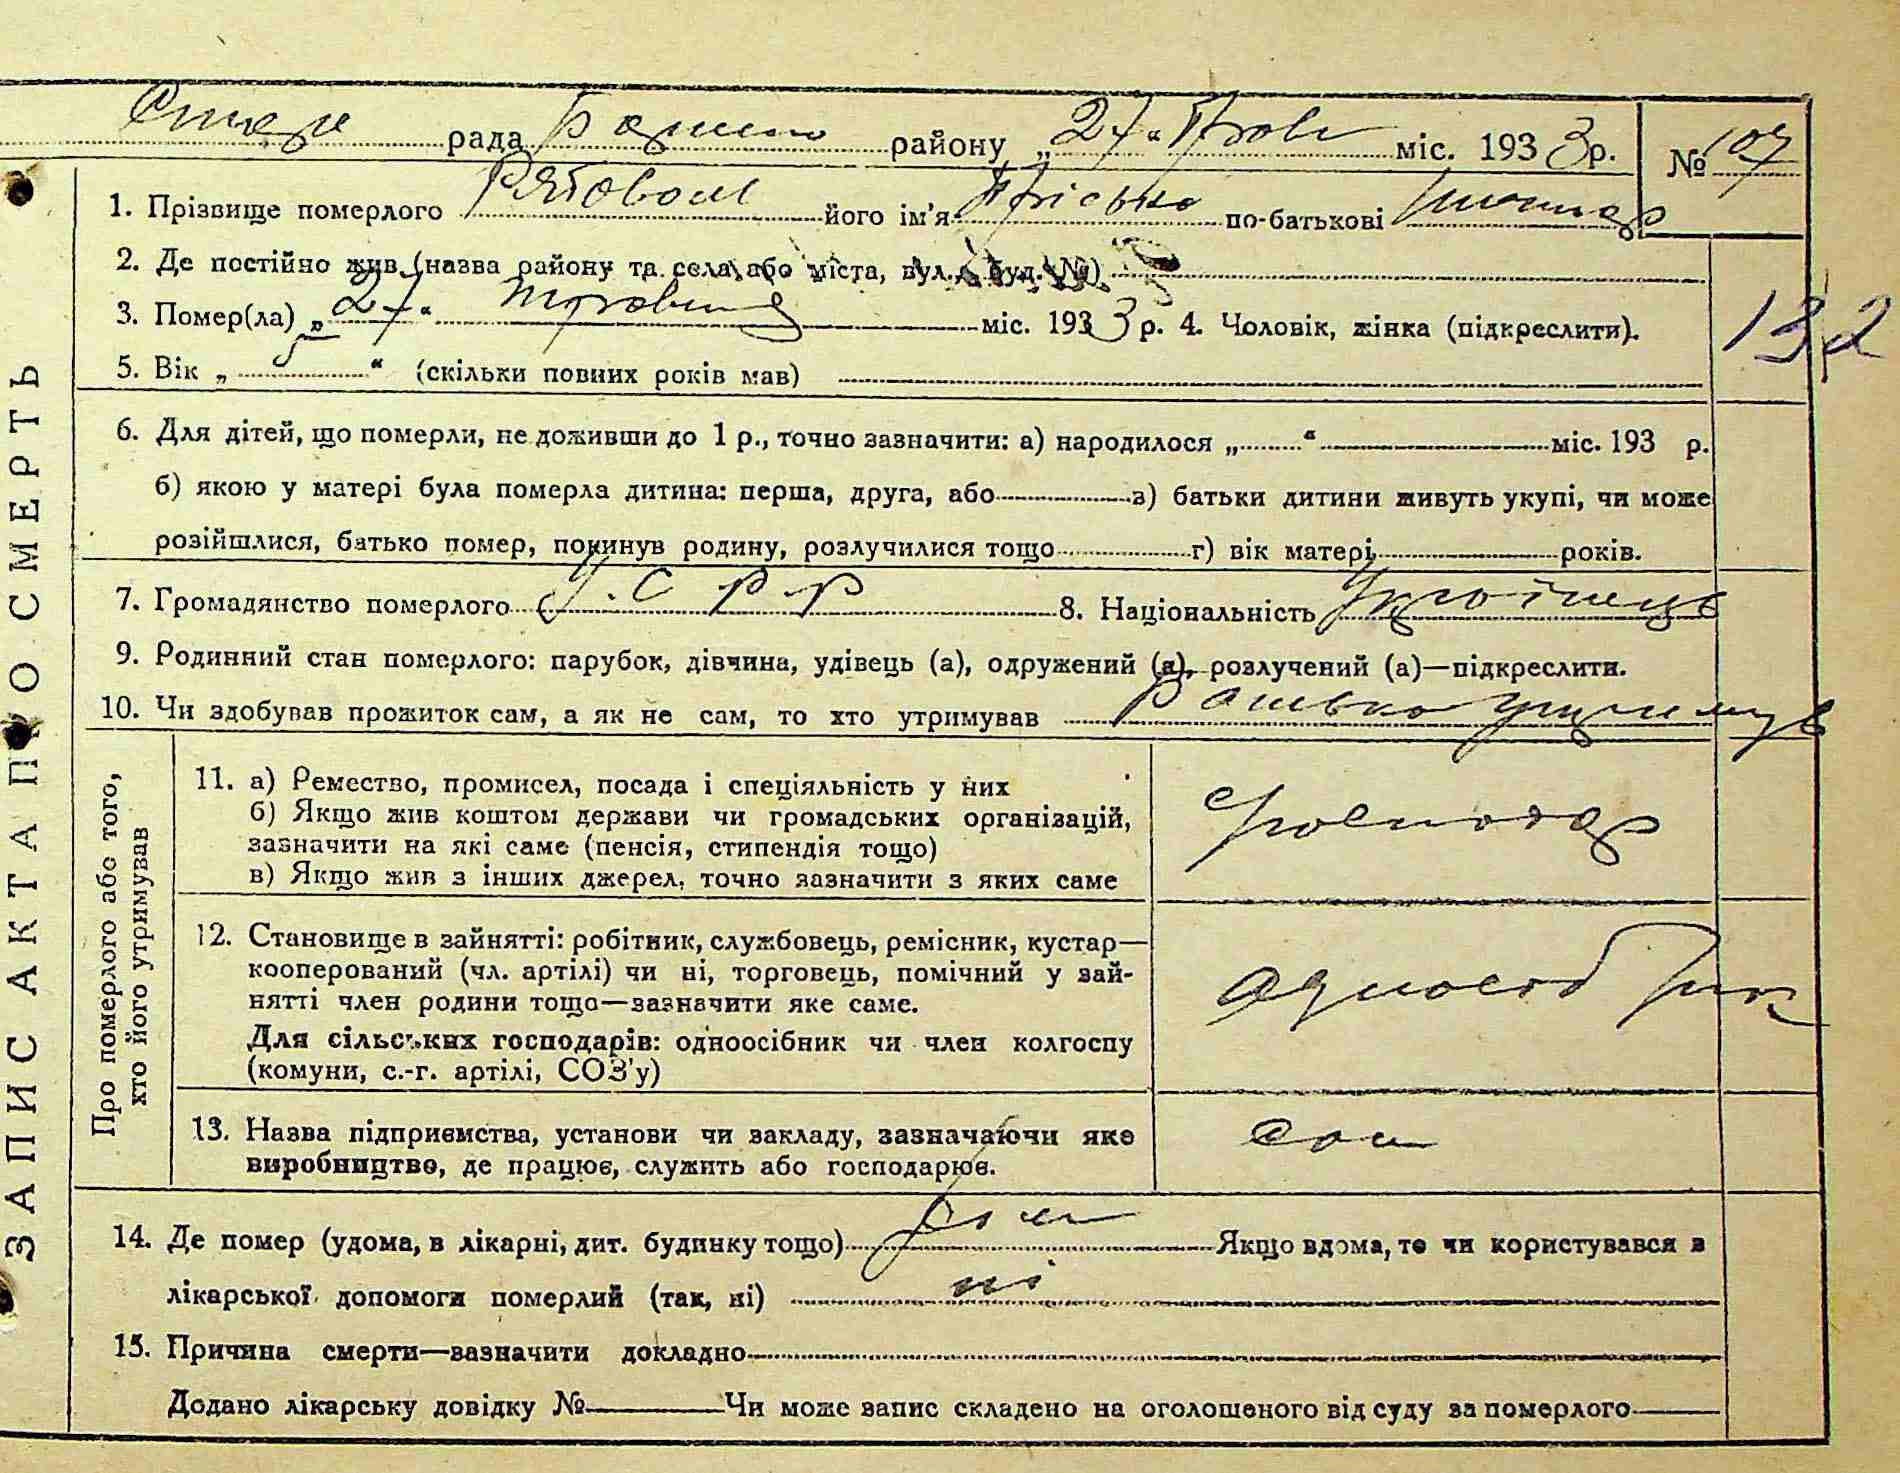 рада района „27“ Трав міс. 1933 р. № 107
1. Прізвище померлого його ім'я Пріська по-батькові
2. Де постійно жив (назва району та села або міста, вул., буд. №)
3. Помер(ла) „27“ травня міс. 1933 р. 4. Чоловік, жінка (підкреслити).
132
5. Вік „5“ (скільки повних років мав)
6. Для дітей, що померли, не доживши до 1 р., точно зазначити: а) народилося „ “ міс. 193 р.
б) якою у матері була померла дитина: перша, друга, або в) батьки дитини живуть укупі, чи може
розійшлися, батько помер, покинув родину, розлучилися тощо г) вік матері років.
7. Громадянство померлого У.С.Р.Р 8. Національність Українець
9. Родинний стан померлого: парубок, дівчина, удівець (а), одружений (а), розлучений (а)—підкреслити.
10. Чи здобував прожиток сам, а як не сам, то хто утримував Батько утримув
Про померлого або того,
хто його утримував
11. а) Ремество, промисел, посада і спеціяльність у них
б) Якщо жив коштом держави чи громадських організацій,
зазначити на які саме (пенсія, стипендія тощо)
в) Якщо жив з інших джерел, точно зазначити з яких саме
Господар
12. Становище в зайнятті: робітник, службовець, ремісник, кустар—
кооперований (чл. артілі) чи ні, торговець, помічний у зай-
нятті член родини тощо—зазначити яке саме.
Для сільських господарів: одноосібник чи член колгоспу
(комуни, с.-г. артілі, СОЗ'у)
13. Назва підприємства, установи чи закладу, зазначаючи яке
виробництво, де працює, служить або господарює.
14. Де помер (удома, в лікарні, дит. будинку тощо) дома Якщо вдома, то чи користувався з
лікарської допомоги померлий (так, ні) ні
15. Причина смерти—зазначити докладно
Додано лікарську довідку № Чи може запис складено на оголошеного від суду за померлого
ЗАПИС АКТА ПРО СМЕРТЬ